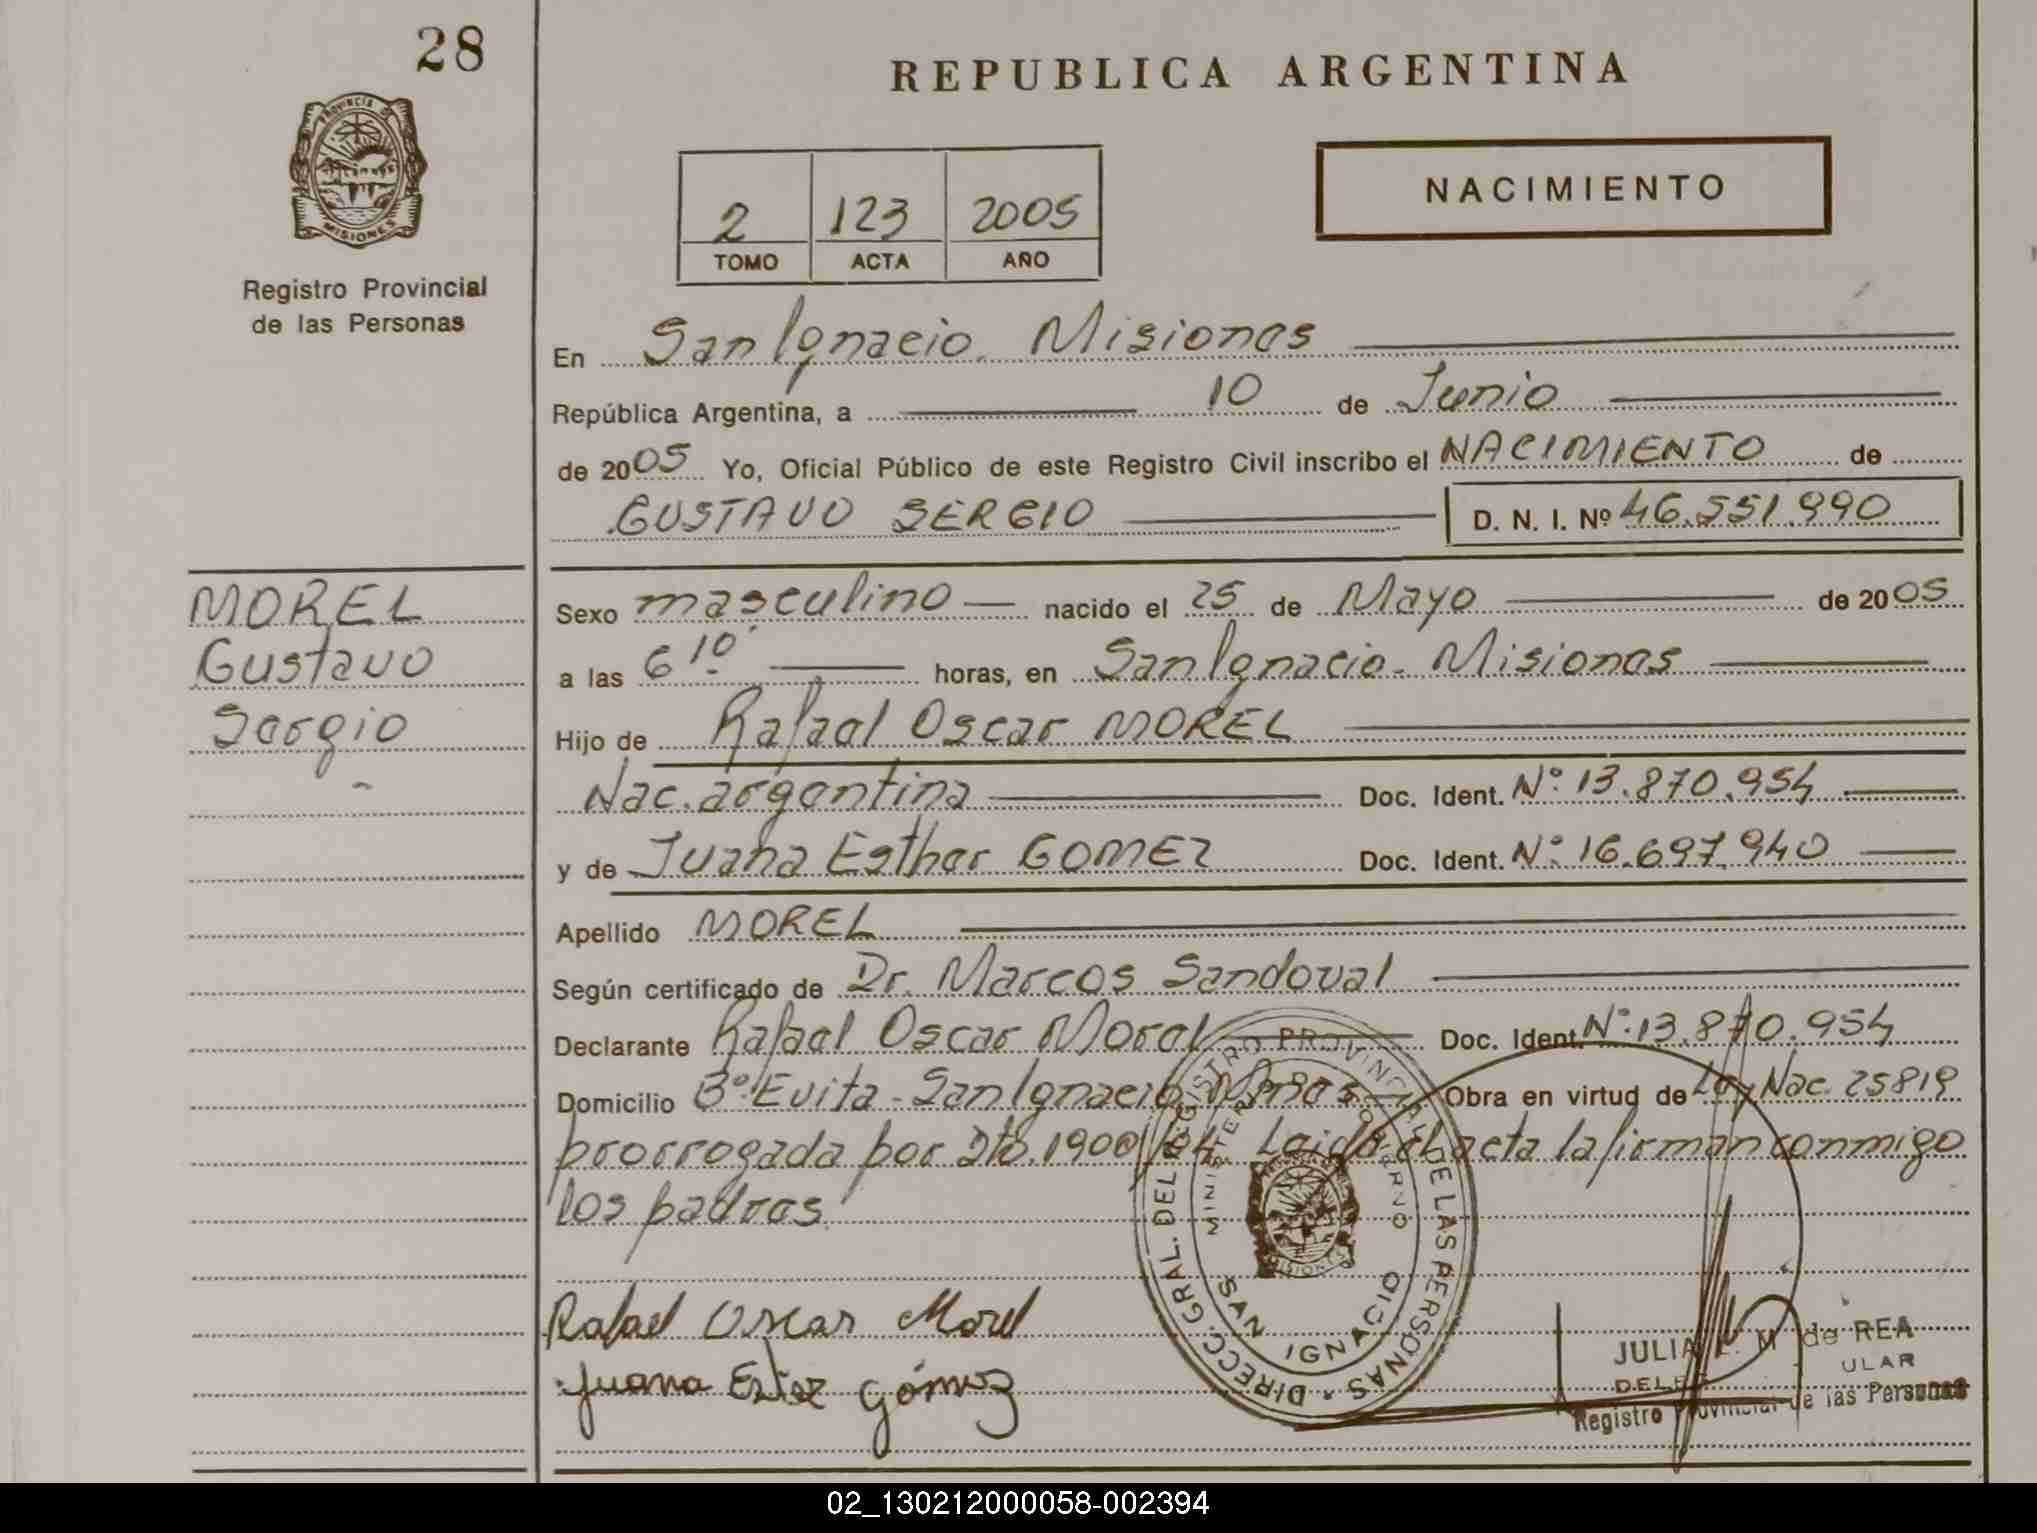 28
REPUBLICA ARGENTINA
PROVINCIA DE
MISIONES
Registro Provincial
de las Personas
NACIMIENTO
2 123 2005
TOMO ACTA AÑO
En San Ignacio. Misiones
República Argentina, a 10 de Junio
de 2005 Yo, Oficial Público de este Registro Civil inscribo el NACIMIENTO de
GUSTAVO SERGIO D. N. I. Nº 46.551.990
MOREL
Gustavo
Sergio
Sexo masculino nacido el 25 de Mayo de 2005
a las 6 10 horas, en San Ignacio. Misiones
Hijo de Rafael Oscar MOREL
Nac. argentina Doc. Ident. Nº: 13.870.954
y de Juana Esther GOMEZ Doc. Ident. Nº: 16.697.940
Apellido MOREL
Según certificado de Dr. Marcos Sandoval
Declarante Rafael Oscar Morel Doc. Ident. Nº: 13.870.954
Domicilio Bº Evita - San Ignacio Mnes Obra en virtud de Ley Nac. 25819
prorrogada por Dto. 1900/04. Leida el acta la firman conmigo
los padres
DIRECC. GRAL. DEL REGISTRO PROVINCIAL DE LAS PERSONAS
MINISTERIO DE GOBIERNO
MISIONES
SAN IGNACIO
Rafael Oscar Morel
Juana Ester Gómez
JULIA E. M de REA
ULAR
Registro Provincial de las Personas
02_130212000058-002394